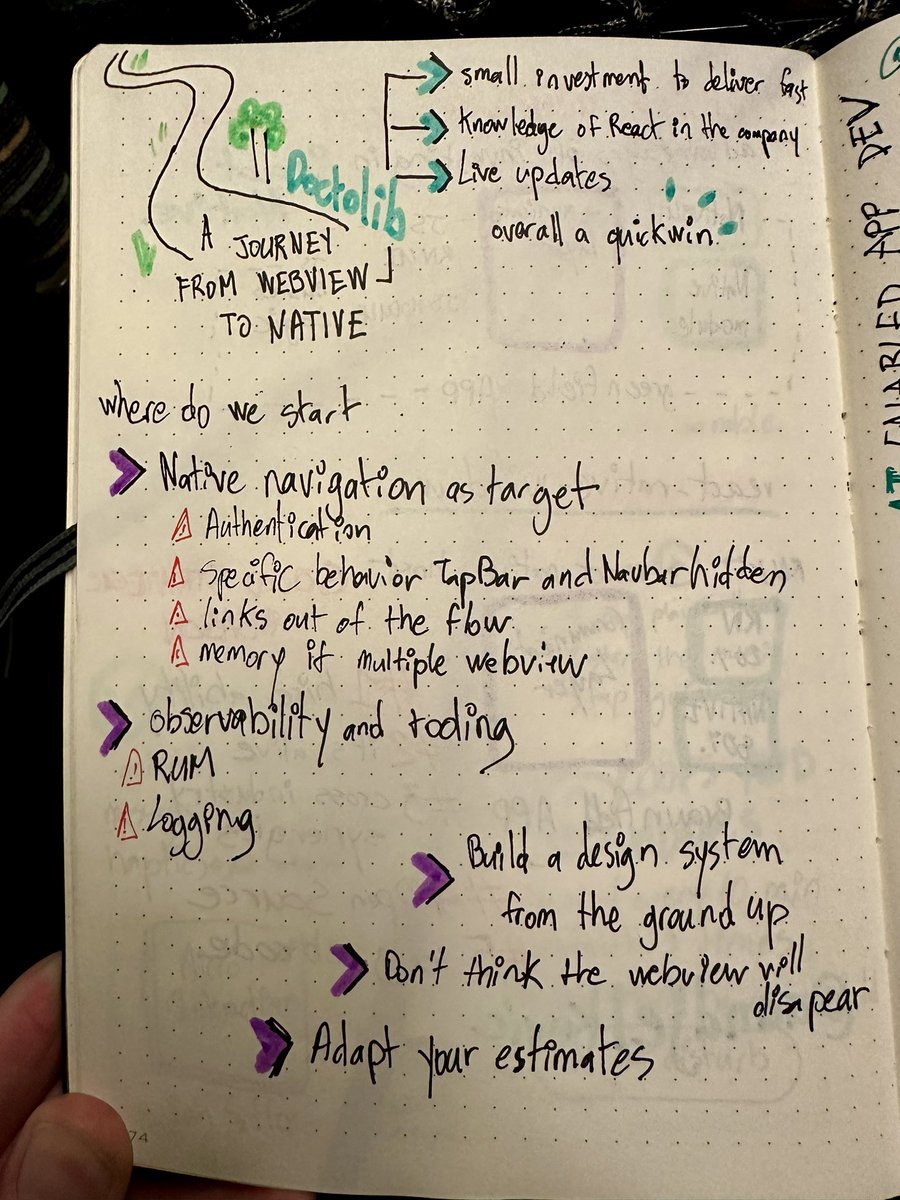 small investment to deliver fast
Knowledge of React in the company
Live updates
overall a quickwin
Doctolib
A JOURNEY
FROM WEBVIEW
TO NATIVE
where do we start
Native navigation as target
Authentication
specific behavior TapBar and Navbar hidden
links out of the flow
memory if multiple webview
observability and tooling
RUM
Logging
Build a design system
from the ground up
Don't think the webview will
disapear
Adapt your estimates
74
ENABLED APP DEV